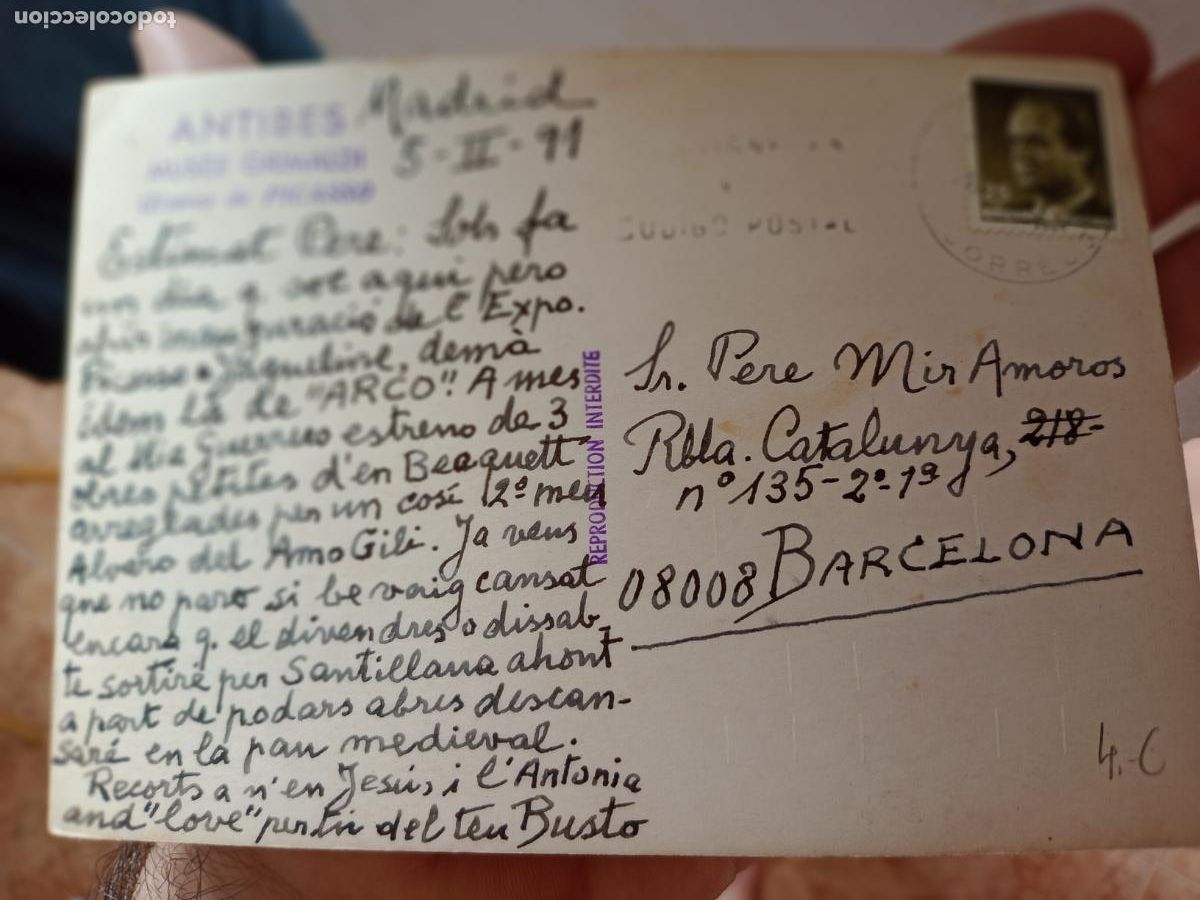 todocoleccion
ANTIBES
MUSÉE GRIMALDI
PICASSO
Madrid
5-II-91
Estimat Pere: Sols fa
un dia q soc aquí pero
ahir inauguració de l'Expo.
Picasso a Jaqueline, demà
idem la de "ARCO". A mes
al Mª Guerrero estreno de 3
obres petites d'en Beaquett
arreglades per un cosí 2º meu
Alvaro del Amo Gili. Ja veus
que no paro si be vaig cansat
encara q. el divendres o dissab-
te sortiré per Santillana ahont
a part de podars abres descan-
saré en la pau medieval.
Recorts a n'en Jesús i l'Antonia
and "love" per tu del teu Busto
REPRODUCTION INTERDITE
CODIGO POSTAL
CORREOS
Sr. Pere Mir Amoros
Rbla. Catalunya, 218-
nº 135-2º-1ª
08008 BARCELONA
4.-C